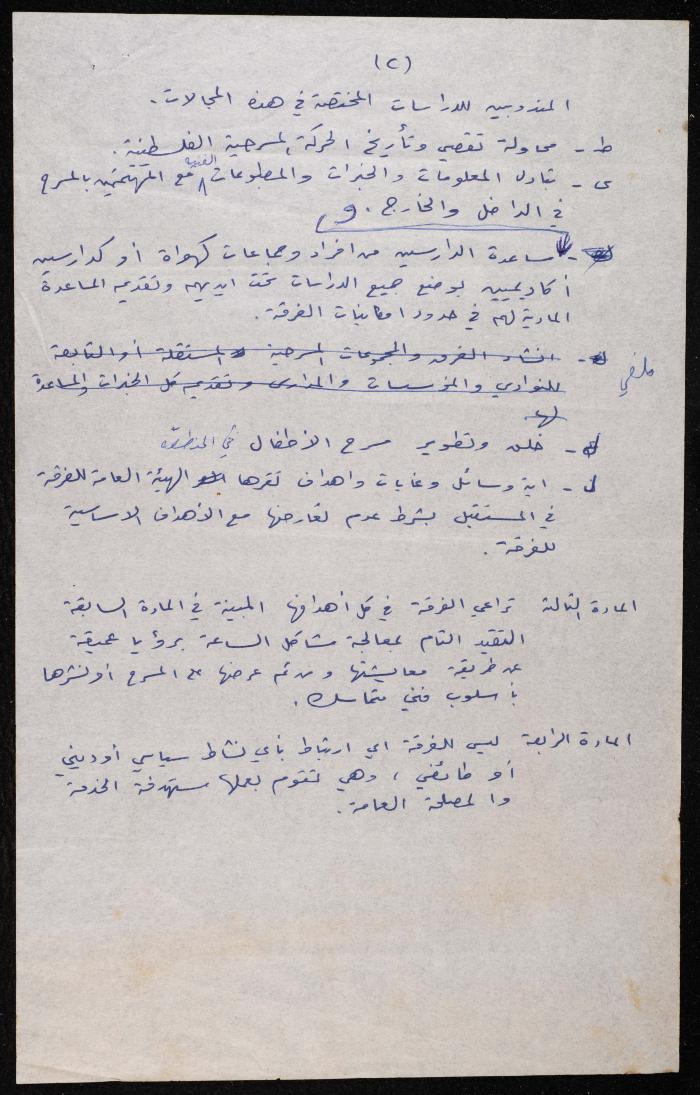 (٢)
المندوبين للدراسات المختصة في هذه المجالات.
ط - محاولة تقصي وتأريخ الحركة المسرحية الفلسطينية.
ى - تبادل المعلومات والخبرات والمطبوعات الفنية مع المهتمين بالمسرح
في الداخل والخارج. و
- مساعدة الدارسين من افراد وجماعات كهواة أو كدارسين
أكاديميين بوضع جميع الدراسات تحت ايديهم وتقديم المساعدة
المادية لهم في حدود امكانيات الفرقة.
- انشاء الفرق والمجموعات المسرحية المستقلة أو التابعة
للنوادي والمؤسسات والمدارس وتقديم كل الخبرات والمساعدة
لها
ملغي
- خلق وتطوير مسرح الأطفال في المنطقة
ل - اية وسائل وغايات واهداف تقرها الهيئة العامة للفرقة
في المستقبل بشرط عدم تعارضها مع الأهداف الاساسية
للفرقة.
المادة الثالثة تراعي الفرقة في كل أهدافها المبينة في المادة السابقة
التقيد التام بمعالجة مشاكل الساعة برؤيا عميقة
عن طريقة معايشتها ومن ثم عرضها على المسرح أو نشرها
بأسلوب فني متماسك.
المادة الرابعة ليس للفرقة اي ارتباط بأي نشاط سياسي أو ديني
أو طائفي، وهي تقوم بعملها مستهدفة الخدمة
والمصلحة العامة.